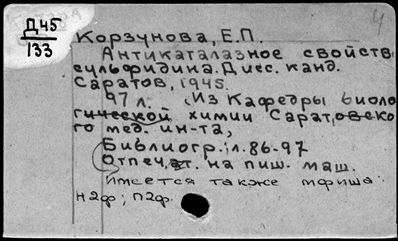 Д45
133
4
Корзунова, Е.П.
Антикаталазное свойств
сульфидина. Дисс. канд.
Саратов, 1945.
97 л. (Из Кафедры биоло
гической химии Саратовско
го мед. ин-та,
Библиогр.: л. 86-97
Отпечат. на пиш. маш.
Имеется также мфиша:
н2ф; п2ф.